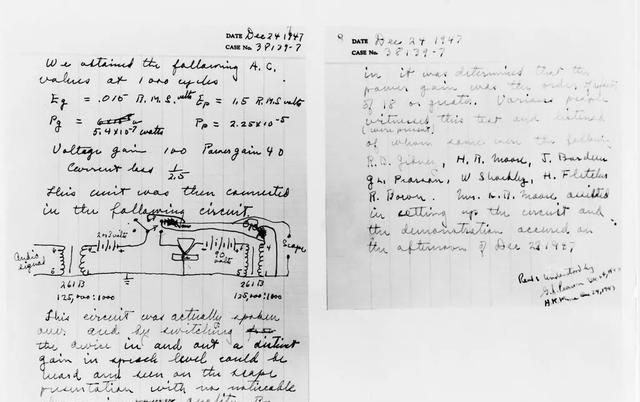 DATE Dec 24 1947
CASE No. 38139-7
We obtained the following A.C.
values at 1000 cycles
Eg = .015 R.M.S. volts Ep = 1.5 R.M.S. volts
Pg = 5.4×10⁻⁷ watts Pp = 2.25×10⁻⁵
Voltage gain 100 Power gain 40
Current loss 1/2.5
This unit was then connected
in the following circuit.
Audio signal
90 volts
Scope
261 B 261 B
125,000:1000 125,000:1000
This circuit was actually spoken
over and by switching
the device in and out a distinct
gain in speech level could be
heard and seen on the scope
presentation with no noticeable
DATE Dec 24 1947
CASE No. 38139-7
in it was determined that the
power gain was the order of
of 18 or greater. Various people
witnessed this test and listened
of whom some were the following
R.B. Gibney, H.R. Moore, J. Bardeen
G.L. Pearson, W. Shockley, H. Fletcher
R. Bown. Mr. H.R. Moore assisted
in setting up the circuit and
the demonstration occurred on
the afternoon of Dec 23 1947
Read & Understood by
G.L. Pearson Dec 24, 1947
H.R. Moore Dec 24, 1947